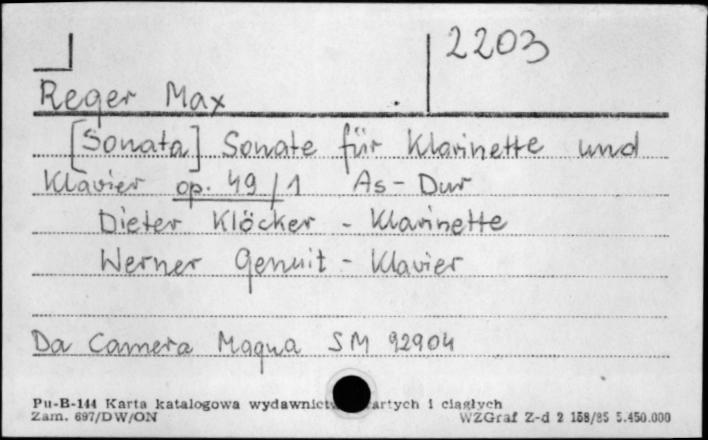 2203
Reger Max
[Sonata] Sonate für Klarinette und
Klavier op. 49/1 As-Dur
Dieter Klöcker - Klarinette
Werner Genuit - Klavier
Da Camera Magna SM 92904
Pu-B-144 Karta katalogowa wydawnictw zwartych i ciągłych
Zam. 697/DW/ON WZGraf Z-d 2 158/85 5.450.000